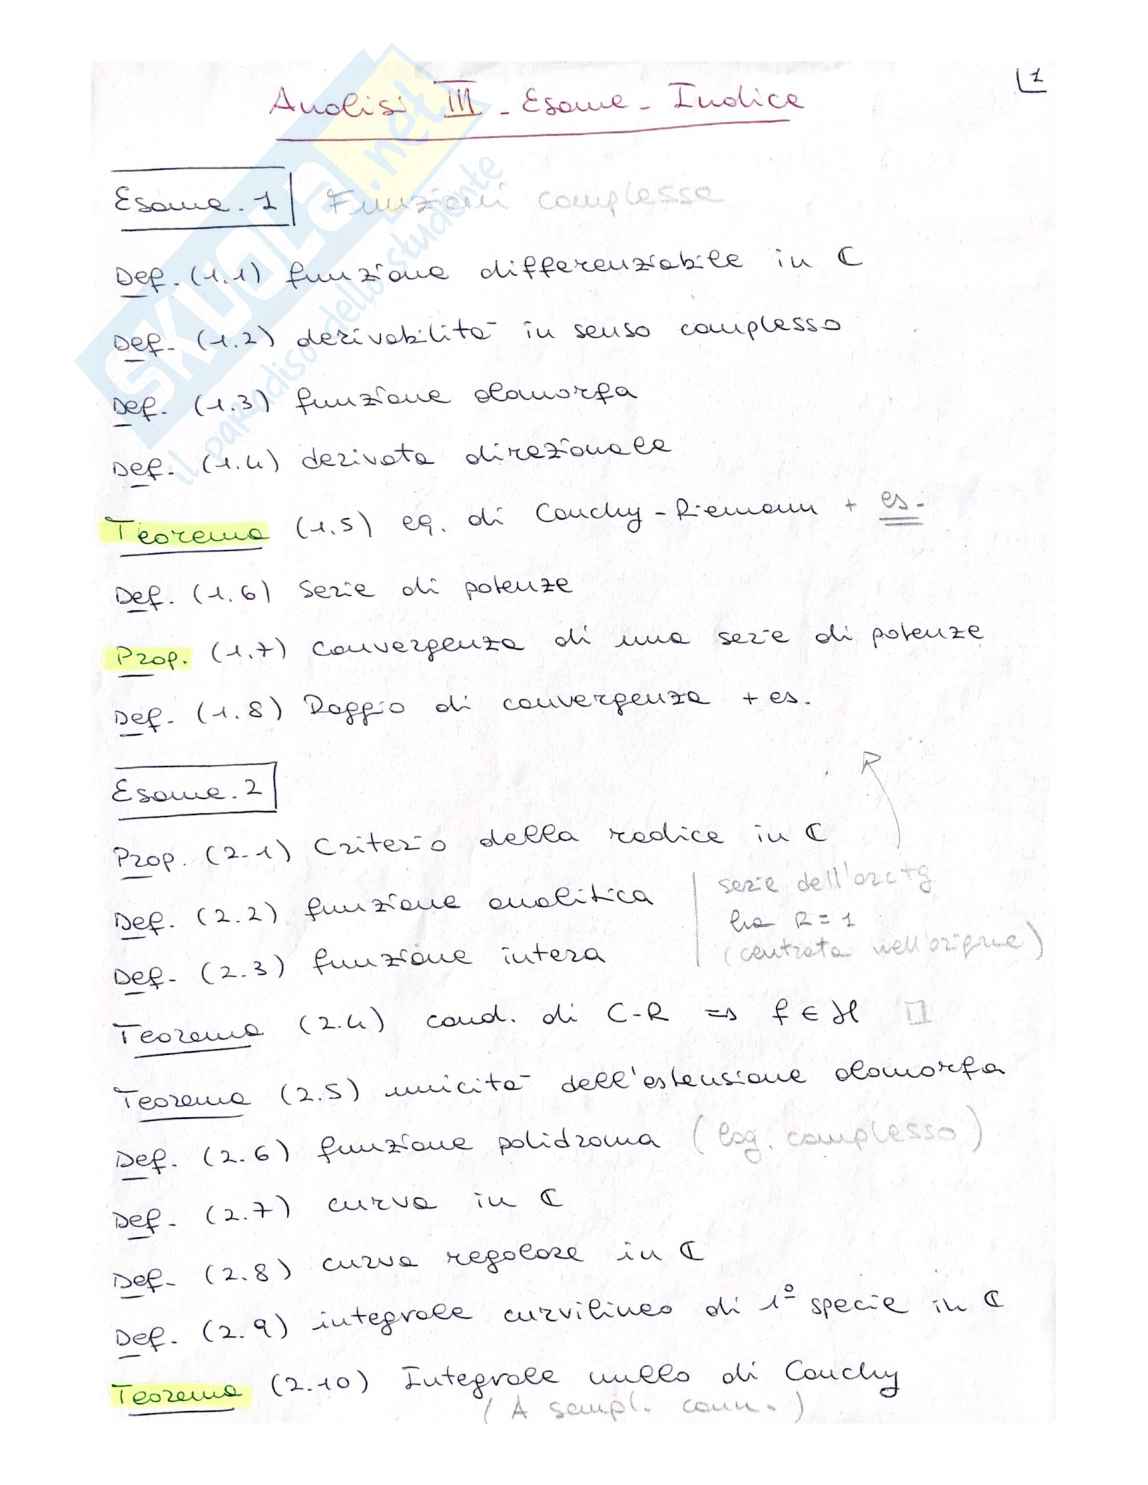 1
Analisi III - Esame - Indice
Esame. 1 Funzioni complesse
Def. (1.1) funzione differenziabile in ℂ
Def. (1.2) derivabilità in senso complesso
Def. (1.3) funzione olomorfa
Def. (1.4) derivata direzionale
Teorema (1.5) eq. di Cauchy-Riemann + es.
Def. (1.6) Serie di potenze
Prop. (1.7) convergenza di una serie di potenze
Def. (1.8) Raggio di convergenza + es.
Esame. 2
Prop. (2.1) Criterio della radice in ℂ
Def. (2.2) funzione analitica
serie dell'arctg
ha R = 1
(centrata nell'origine)
Def. (2.3) funzione intera
Teorema (2.4) cond. di C-R ⇒ f ∈ H □
Teorema (2.5) unicità dell'estensione olomorfa
Def. (2.6) funzione polidroma (log. complesso)
Def. (2.7) curva in ℂ
Def. (2.8) curva regolare in ℂ
Def. (2.9) integrale curvilineo di 1º specie in ℂ
Teorema (2.10) Integrale nullo di Cauchy
(A sempl. conn.)
SKUOLA.net
il paradiso dello studente